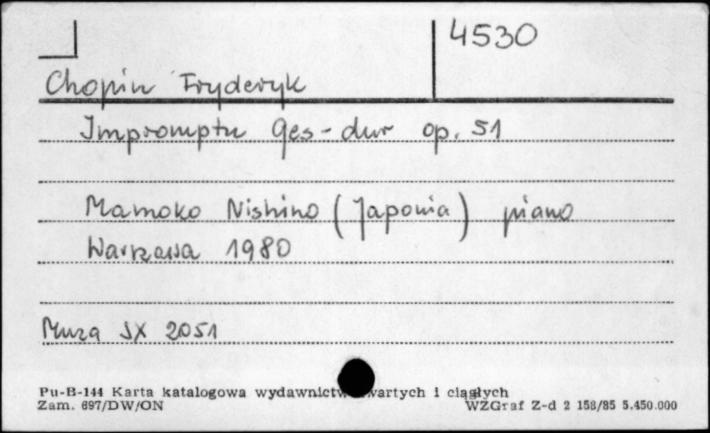 4530
Chopin Fryderyk
Impromptu Ges-dur op. 51
Mamoko Nishino (Japonia) piano
Warszawa 1980
Muza SX 2051
Pu-B-144 Karta katalogowa wydawnictw zwartych i ciągłych
Zam. 697/DW/ON WZGraf Z-d 2 158/85 5.450.000